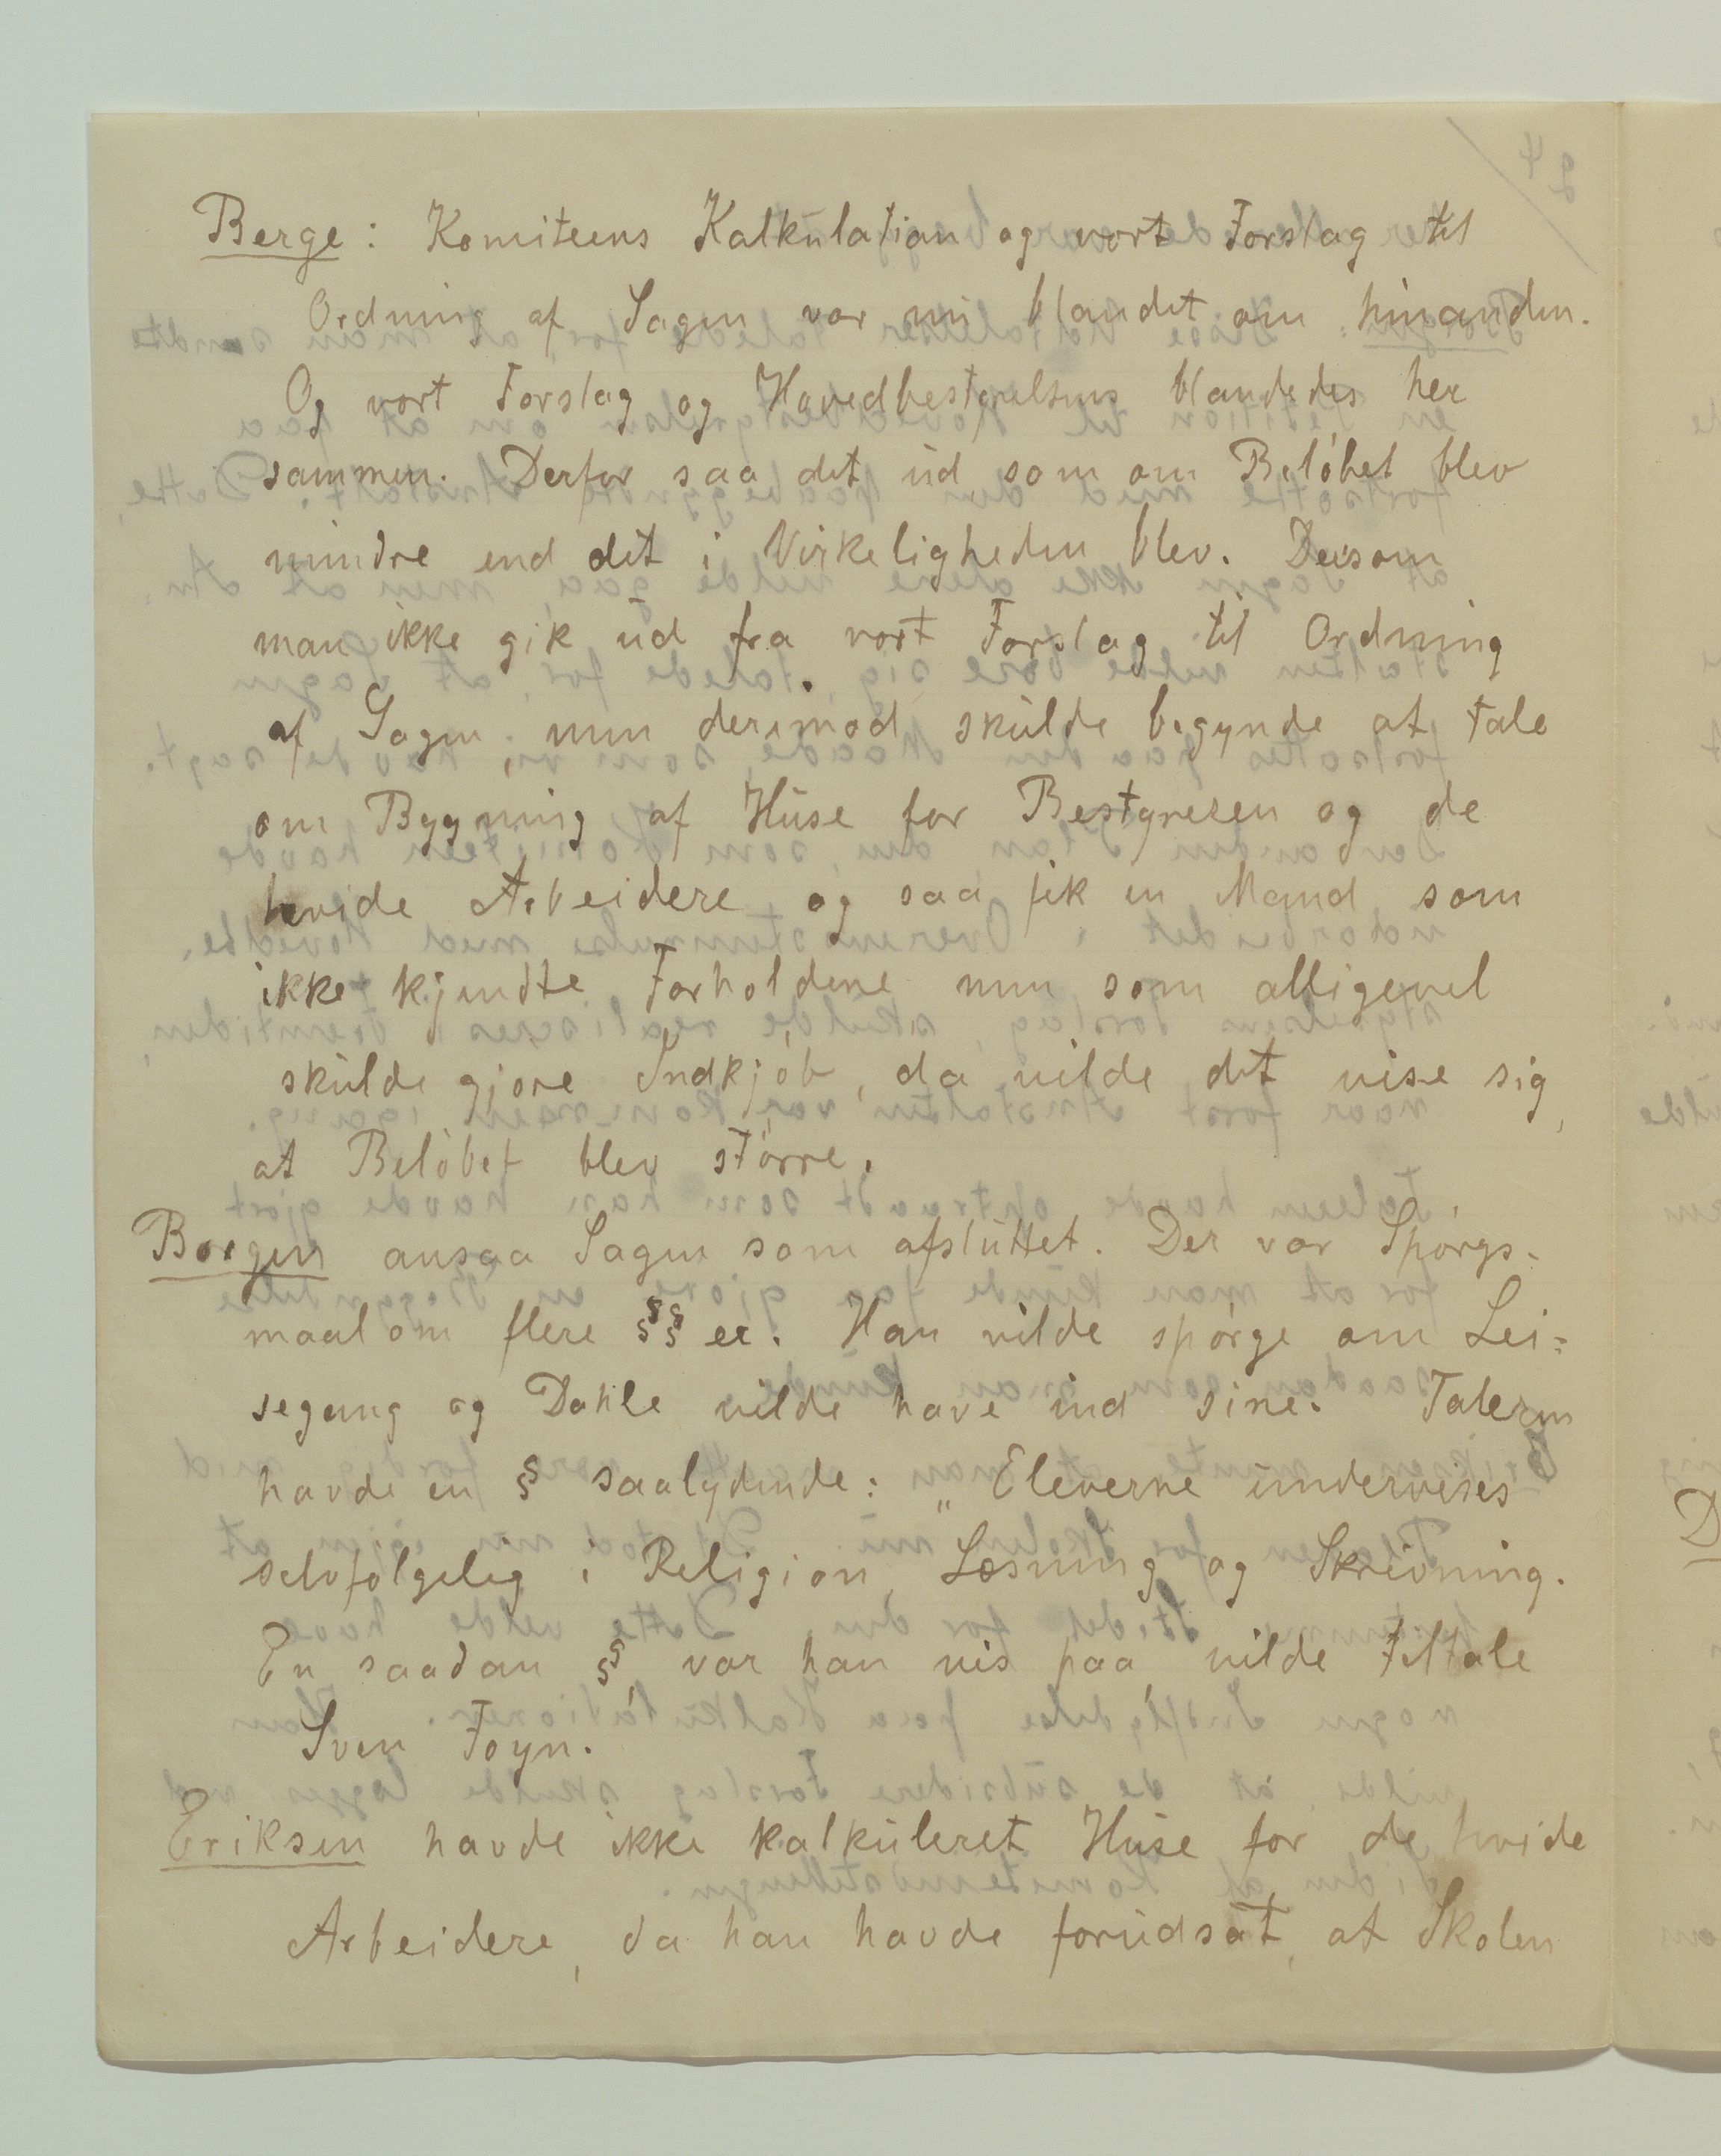 Berge: Komiteens Kalkulation og vort Forslag til
Ordning af Sagen var nu blandet om hinanden.
Og vort Forslag og Hovedbestyrelsens blandedes her
sammen. Derfor saa det ud som om Beløbet blev
mindre end det i Virkeligheden blev. Dersom
man ikke gik ud fra vort Forslag til Ordning
af Sagen, men derimod skulde begynde at tale
om Bygning af Huse for Bestyreren og de
hvide Arbeidere og saa fik en Mand som
ikke kjendte Forholdene men som alligevel
skulde gjøre Indkjøb, da vilde det vise sig,
at Beløbet blev større.
Borgen ansaa Sagen som afsluttet. Der var Spørgs-
maal om flere §§er. Han vilde spørge om Lei=
segang og Dahle vilde have ind sine. Taleren
havde en § saalydende: „Eleverne undervises
selvfølgelig i Religion, Læsning og Skrivning.
En saadan §, var han vis paa, vilde tiltale
Sven Foyn.
Eriksen havde ikke kalkuleret Huse for de hvide
Arbeidere, da han havde forudsat, at Skolen